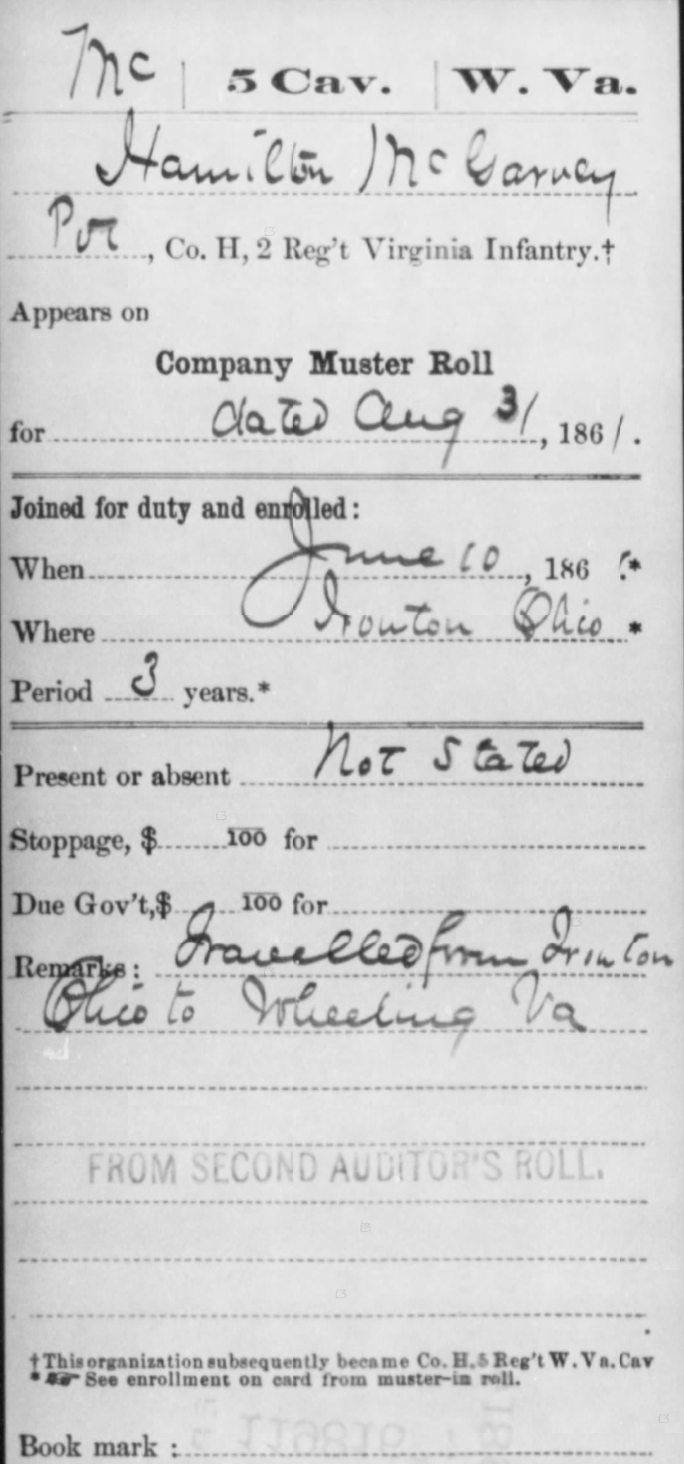 Mc | 5 Cav. | W. Va.
Hamilton McGarvey
Pvt, Co. H, 2 Reg't Virginia Infantry.†
Appears on
Company Muster Roll
for dated Aug 31, 1861.
Joined for duty and enrolled:
When June 10, 186 .*
Where Ironton Ohio *
Period 3 years.*
Present or absent Not Stated
Stoppage, $ 100 for
Due Gov't, $ 100 for
Remarks: Travelled from Ironton
Ohio to Wheeling Va
FROM SECOND AUDITOR'S ROLL.
†This organization subsequently became Co. H, 5 Reg't W. Va. Cav
*☞ See enrollment on card from muster-in roll.
Book mark: